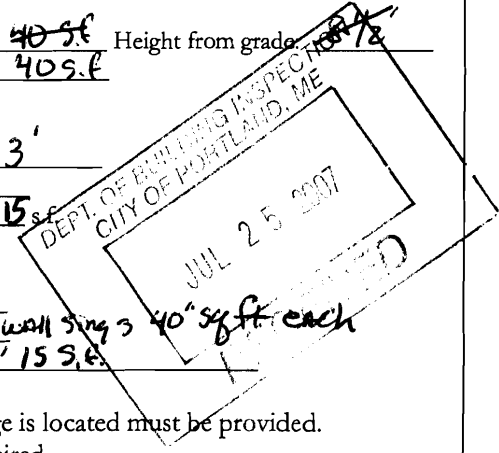 40 S.f Height from grade:
40 S.f
3'
15 s.f.
DEPT. OF BUILDING INSPECTION
CITY OF PORTLAND, ME
JUL 25 2007
wall sing 3 40" sq ft each
15 S.f.
ge is located must be provided.